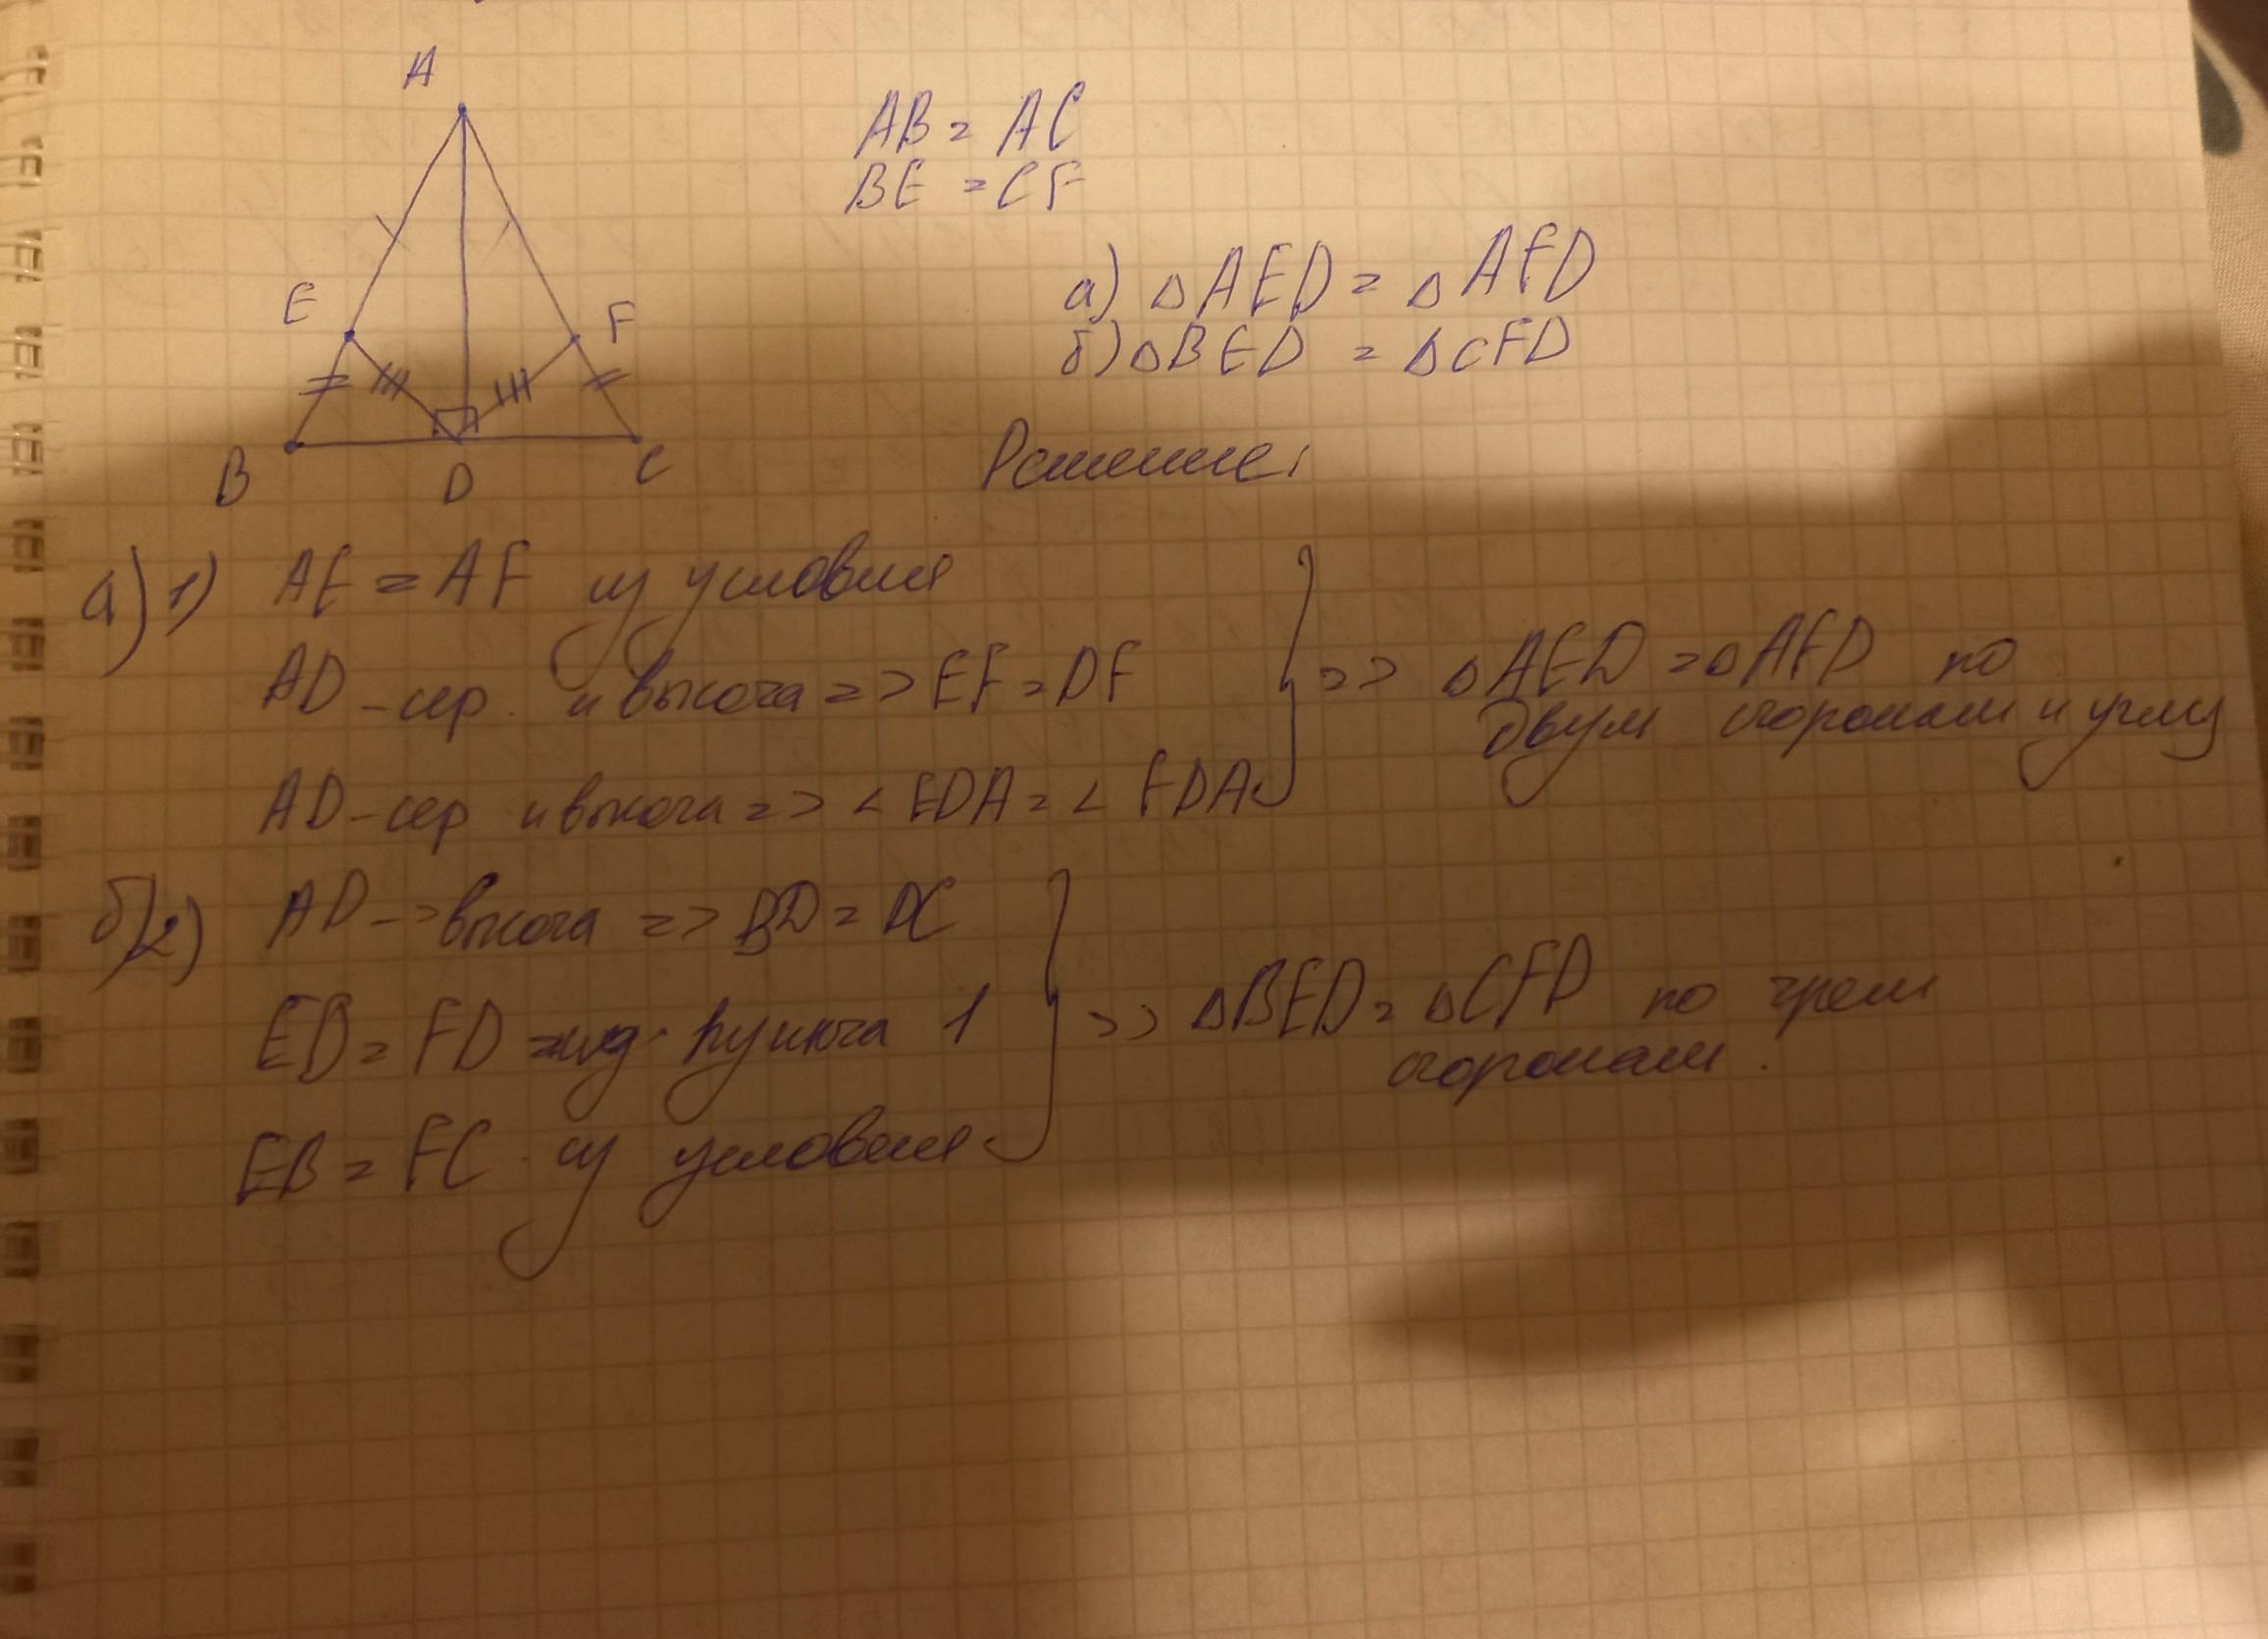 A
AB = AC
BE = CF
E
F
а) △AED = △AFD
б) △BED = △CFD
B
D
C
Решение:
а) 1) AE = AF из условия
AD – сер. и высота => EF = DF
=> △AED = △AFD по
двум сторонам и углу
AD – сер и высота => ∠EDA = ∠FDA
б) 2) AD -> высота => BD = DC
ED = FD из пункта 1
=> △BED = △CFD по трем
сторонам.
EB = FC из условия